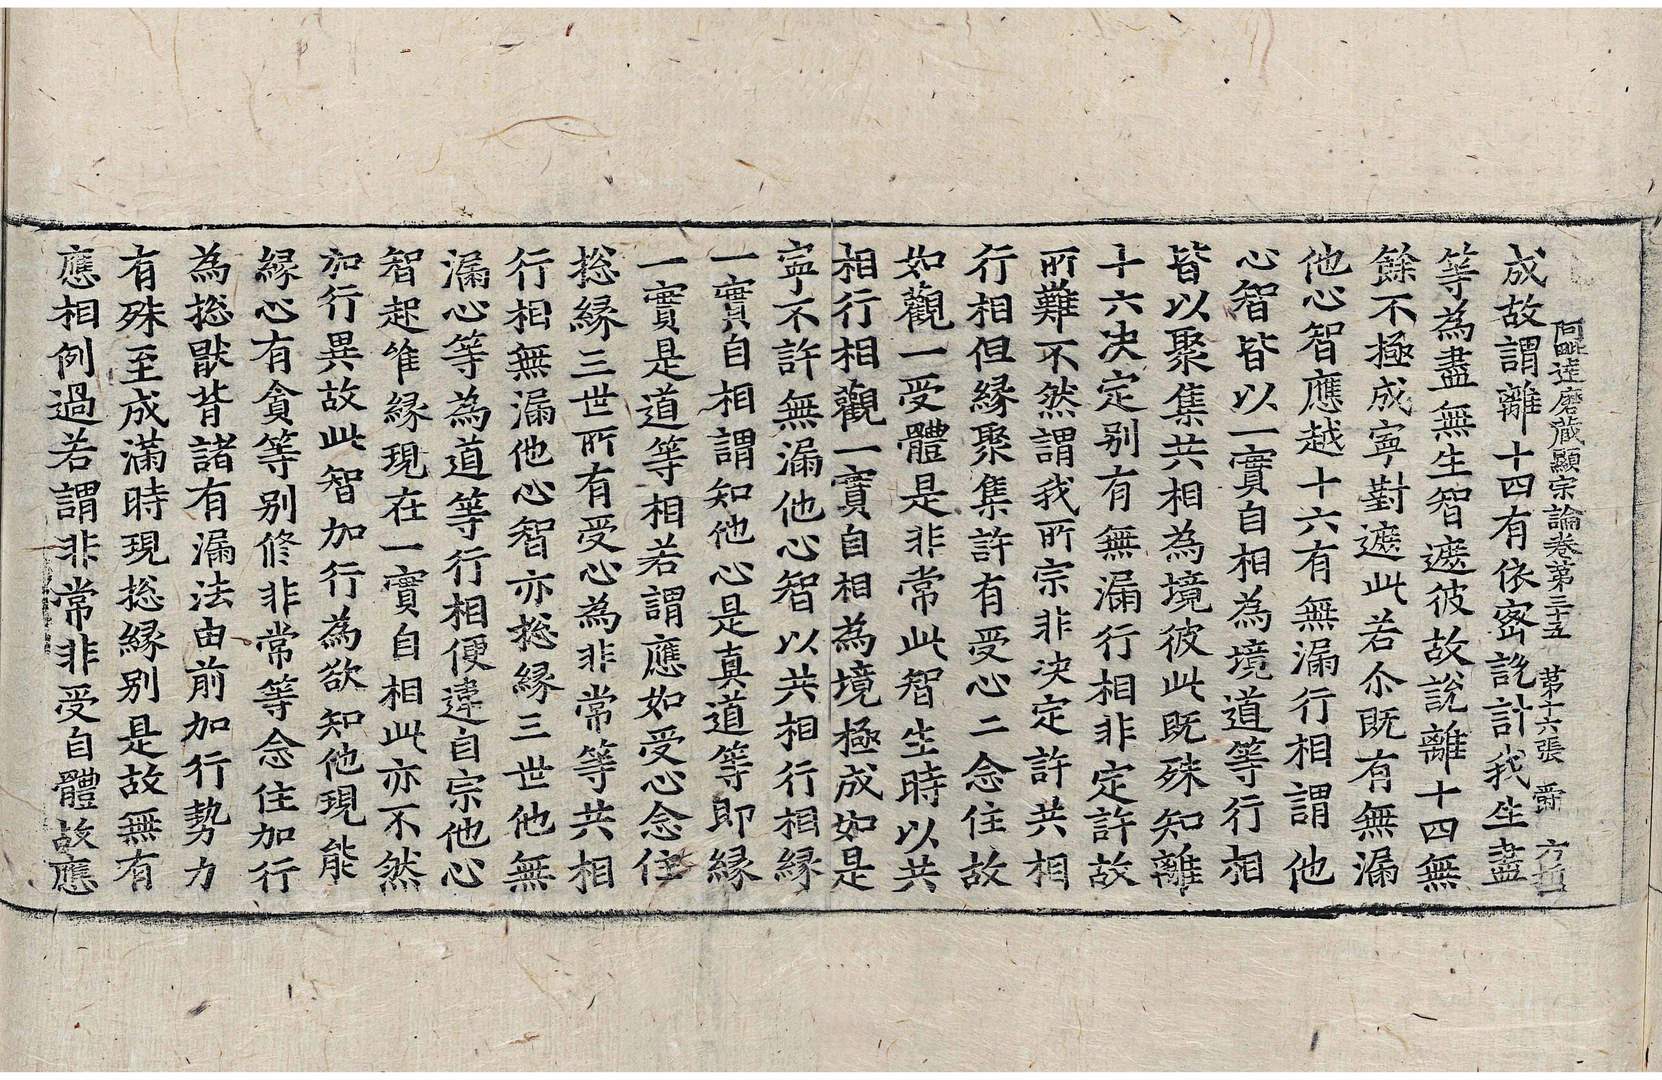 阿毗達磨藏顯宗論卷第三十五　第十六張　爵
成故謂離十四有依密說計我生盡
等為盡無生智遮彼故說離十四無
餘不極成寧對遮此若尒既有無漏
他心智應越十六有無漏行相謂他
心智皆以一實自相為境道等行相
皆以聚集共相為境彼此既殊知離
十六决定别有無漏行相非定許故
所難不然謂我所宗非决定許共相
行相但緣聚集許有受心二念住故
如觀一受體是非常此智生時以共
相行相觀一實自相為境極成如是
寧不許無漏他心智以共相行相緣
一實自相謂知他心是真道等即緣
一實是道等相若謂應如受心念住
捴緣三世所有受心為非常等共相
行相無漏他心智亦捴緣三世他無
漏心等為道等行相便違自宗他心
智起唯緣現在一實自相此亦不然
加行異故此智加行為欲知他現能
緣心有貪等别修非常等念住加行
為捴猒背諸有漏法由前加行勢力
有殊至成滿時現捴緣别是故無有
應相例過若謂非常非受自體故應